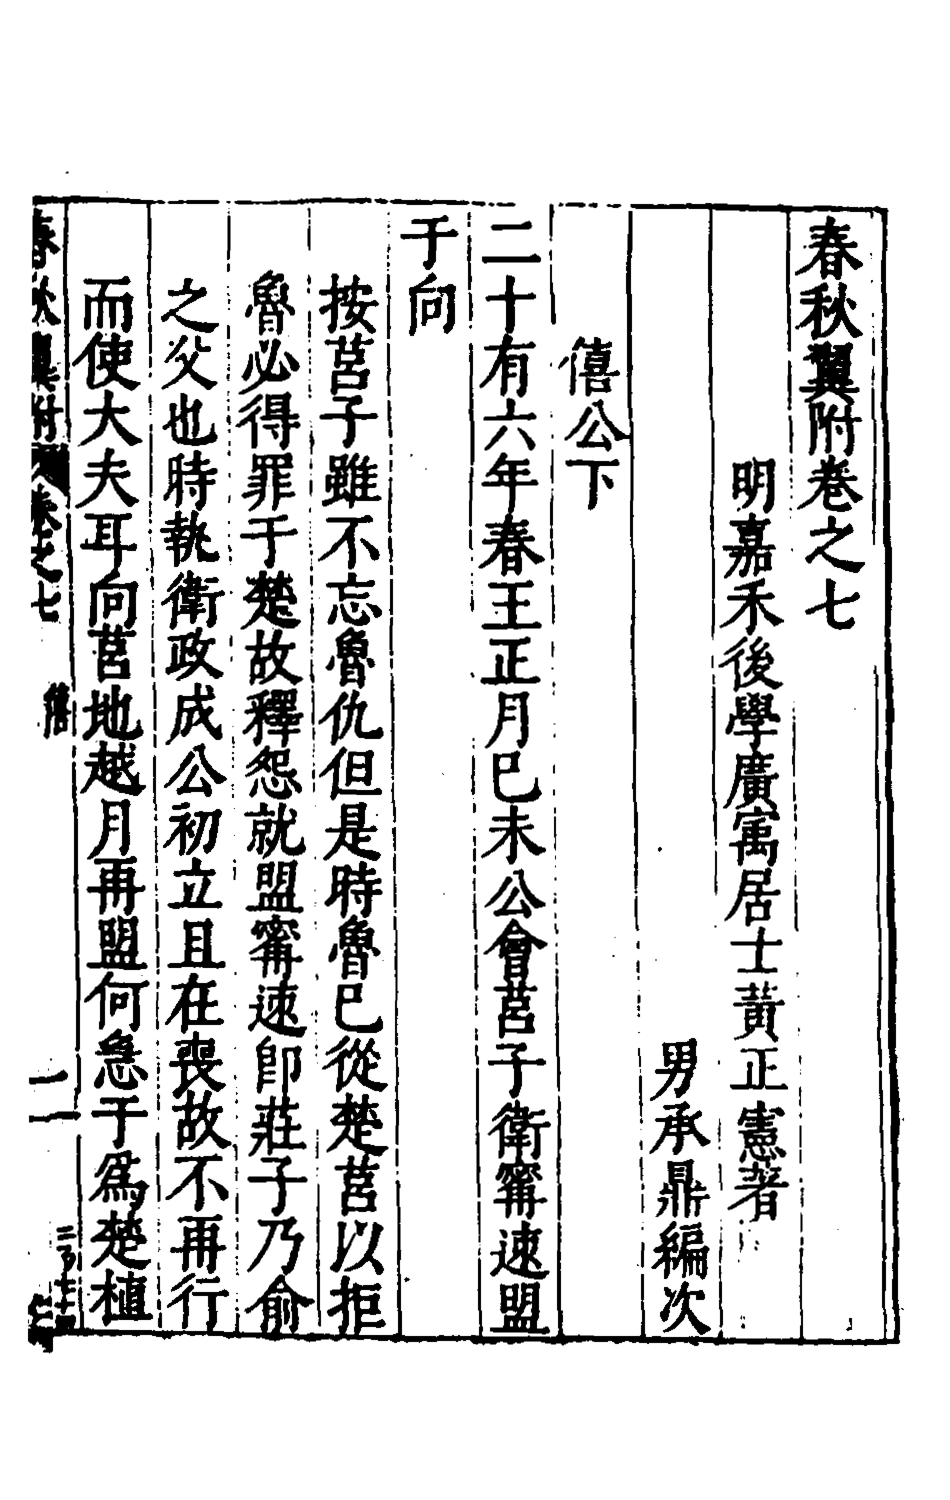 春秋翼附卷之七
明嘉禾後學廣寓居士黃正憲著
男承鼎編次
僖公下
二十有六年春王正月巳未公會莒子衛甯速盟
于向
按莒子雖不忘魯仇但是時魯巳從楚莒以拒
魯必得罪于楚故釋怨就盟甯速即莊子乃俞
之父也時執衛政成公初立且在喪故不再行
而使大夫耳向莒地越月再盟何急于爲楚植
春秋翼附 卷之七 僖 一